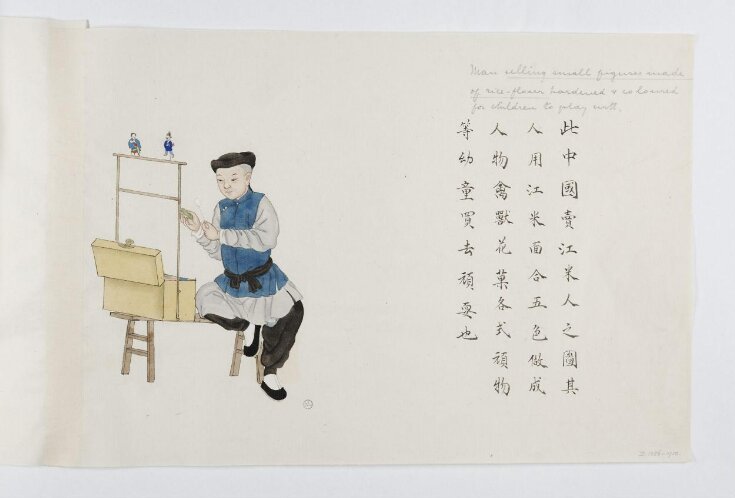 Man selling small figures made
of rice-flour hardened & coloured
for children to play with.
此中國賣江米人之圖其
人用江米面合五色做成
人物禽獸花菓各式頑物
等幼童買去頑耍也